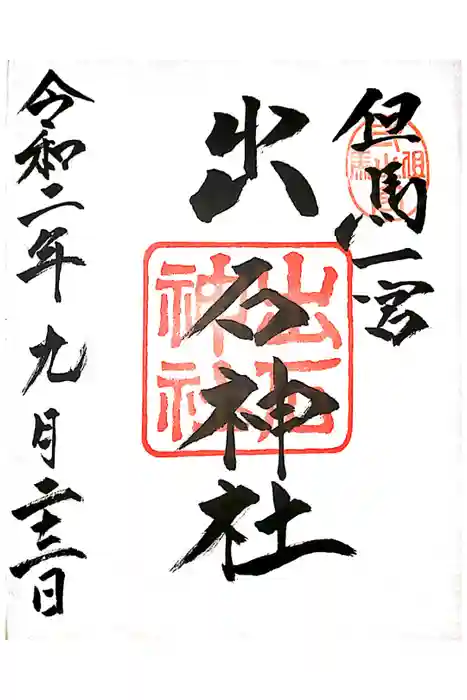 但馬一宮
出石神社
出石
神社
令和二年九月二十三日